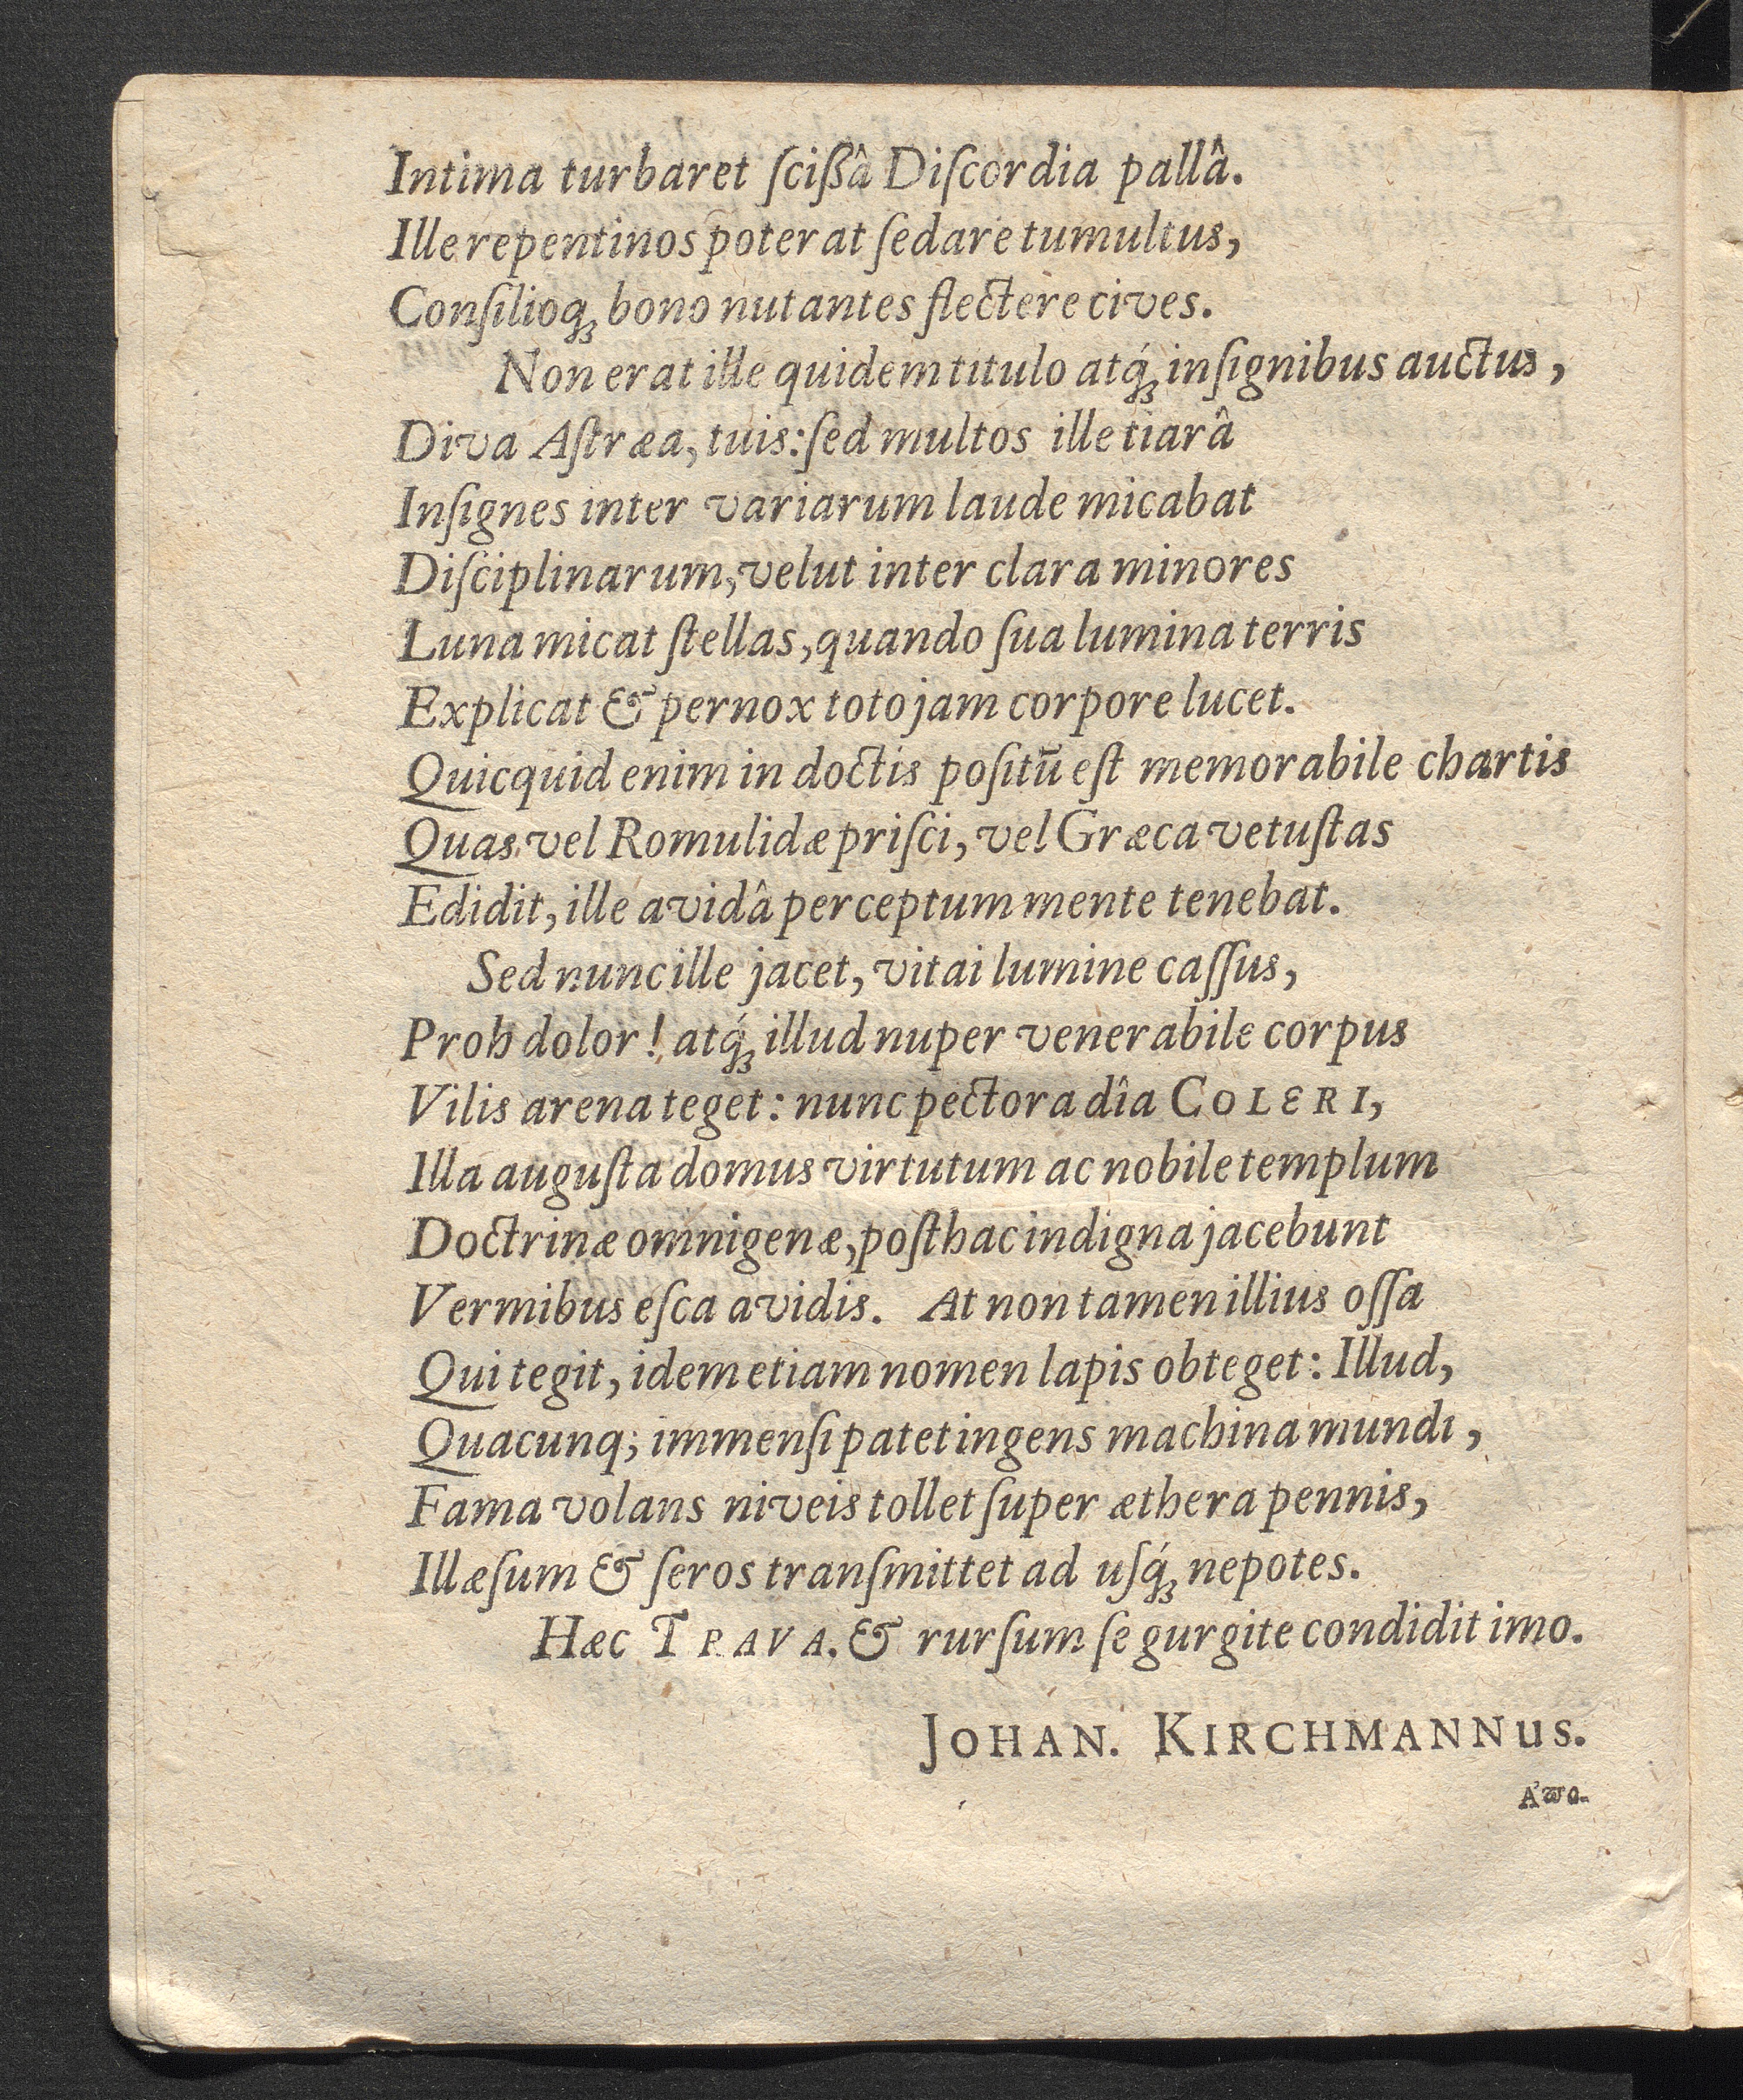 Intima turbaret ſcißâ Diſcordia pallâ.
Ille repentinos poterat ſedare tumultus,
Conſilioq́ꝫ bono nutantes flectere cives.
Non erat ille quidem titulo atq́ꝫ inſignibus auctus,
Diva Aſtræa, tuis: ſed multos ille tiarâ
Inſignes inter variarum laude micabat
Diſciplinarum, velut inter clara minores
Luna micat ſtellas, quando ſua lumina terris
Explicat & pernox toto jam corpore lucet.
Quicquid enim in doctis poſitū eſt memorabile chartis
Quas vel Romulidæ priſci, vel Græca vetuſtas
Edidit, ille avidâ perceptum mente tenebat.
Sed nunc ille jacet, vitai lumine caſſus,
Proh dolor! atq́ꝫ illud nuper venerabile corpus
Vilis arena teget: nunc pectora dîa COLERI,
Illa auguſta domus virtutum ac nobile templum
Doctrinæ omnigenæ, poſthac indigna jacebunt
Vermibus eſca avidis. At non tamen illius oſſa
Qui tegit, idem etiam nomen lapis obteget: Illud,
Quacunq; immenſi patet ingens machina mundi,
Fama volans niveis tollet ſuper æthera pennis,
Illæſum & ſeros tranſmittet ad uſq́ꝫ nepotes.
Hæc TRAVA. & rurſum ſe gurgite condidit imo.
JOHAN. KIRCHMANNUS.
Ἀϖο-